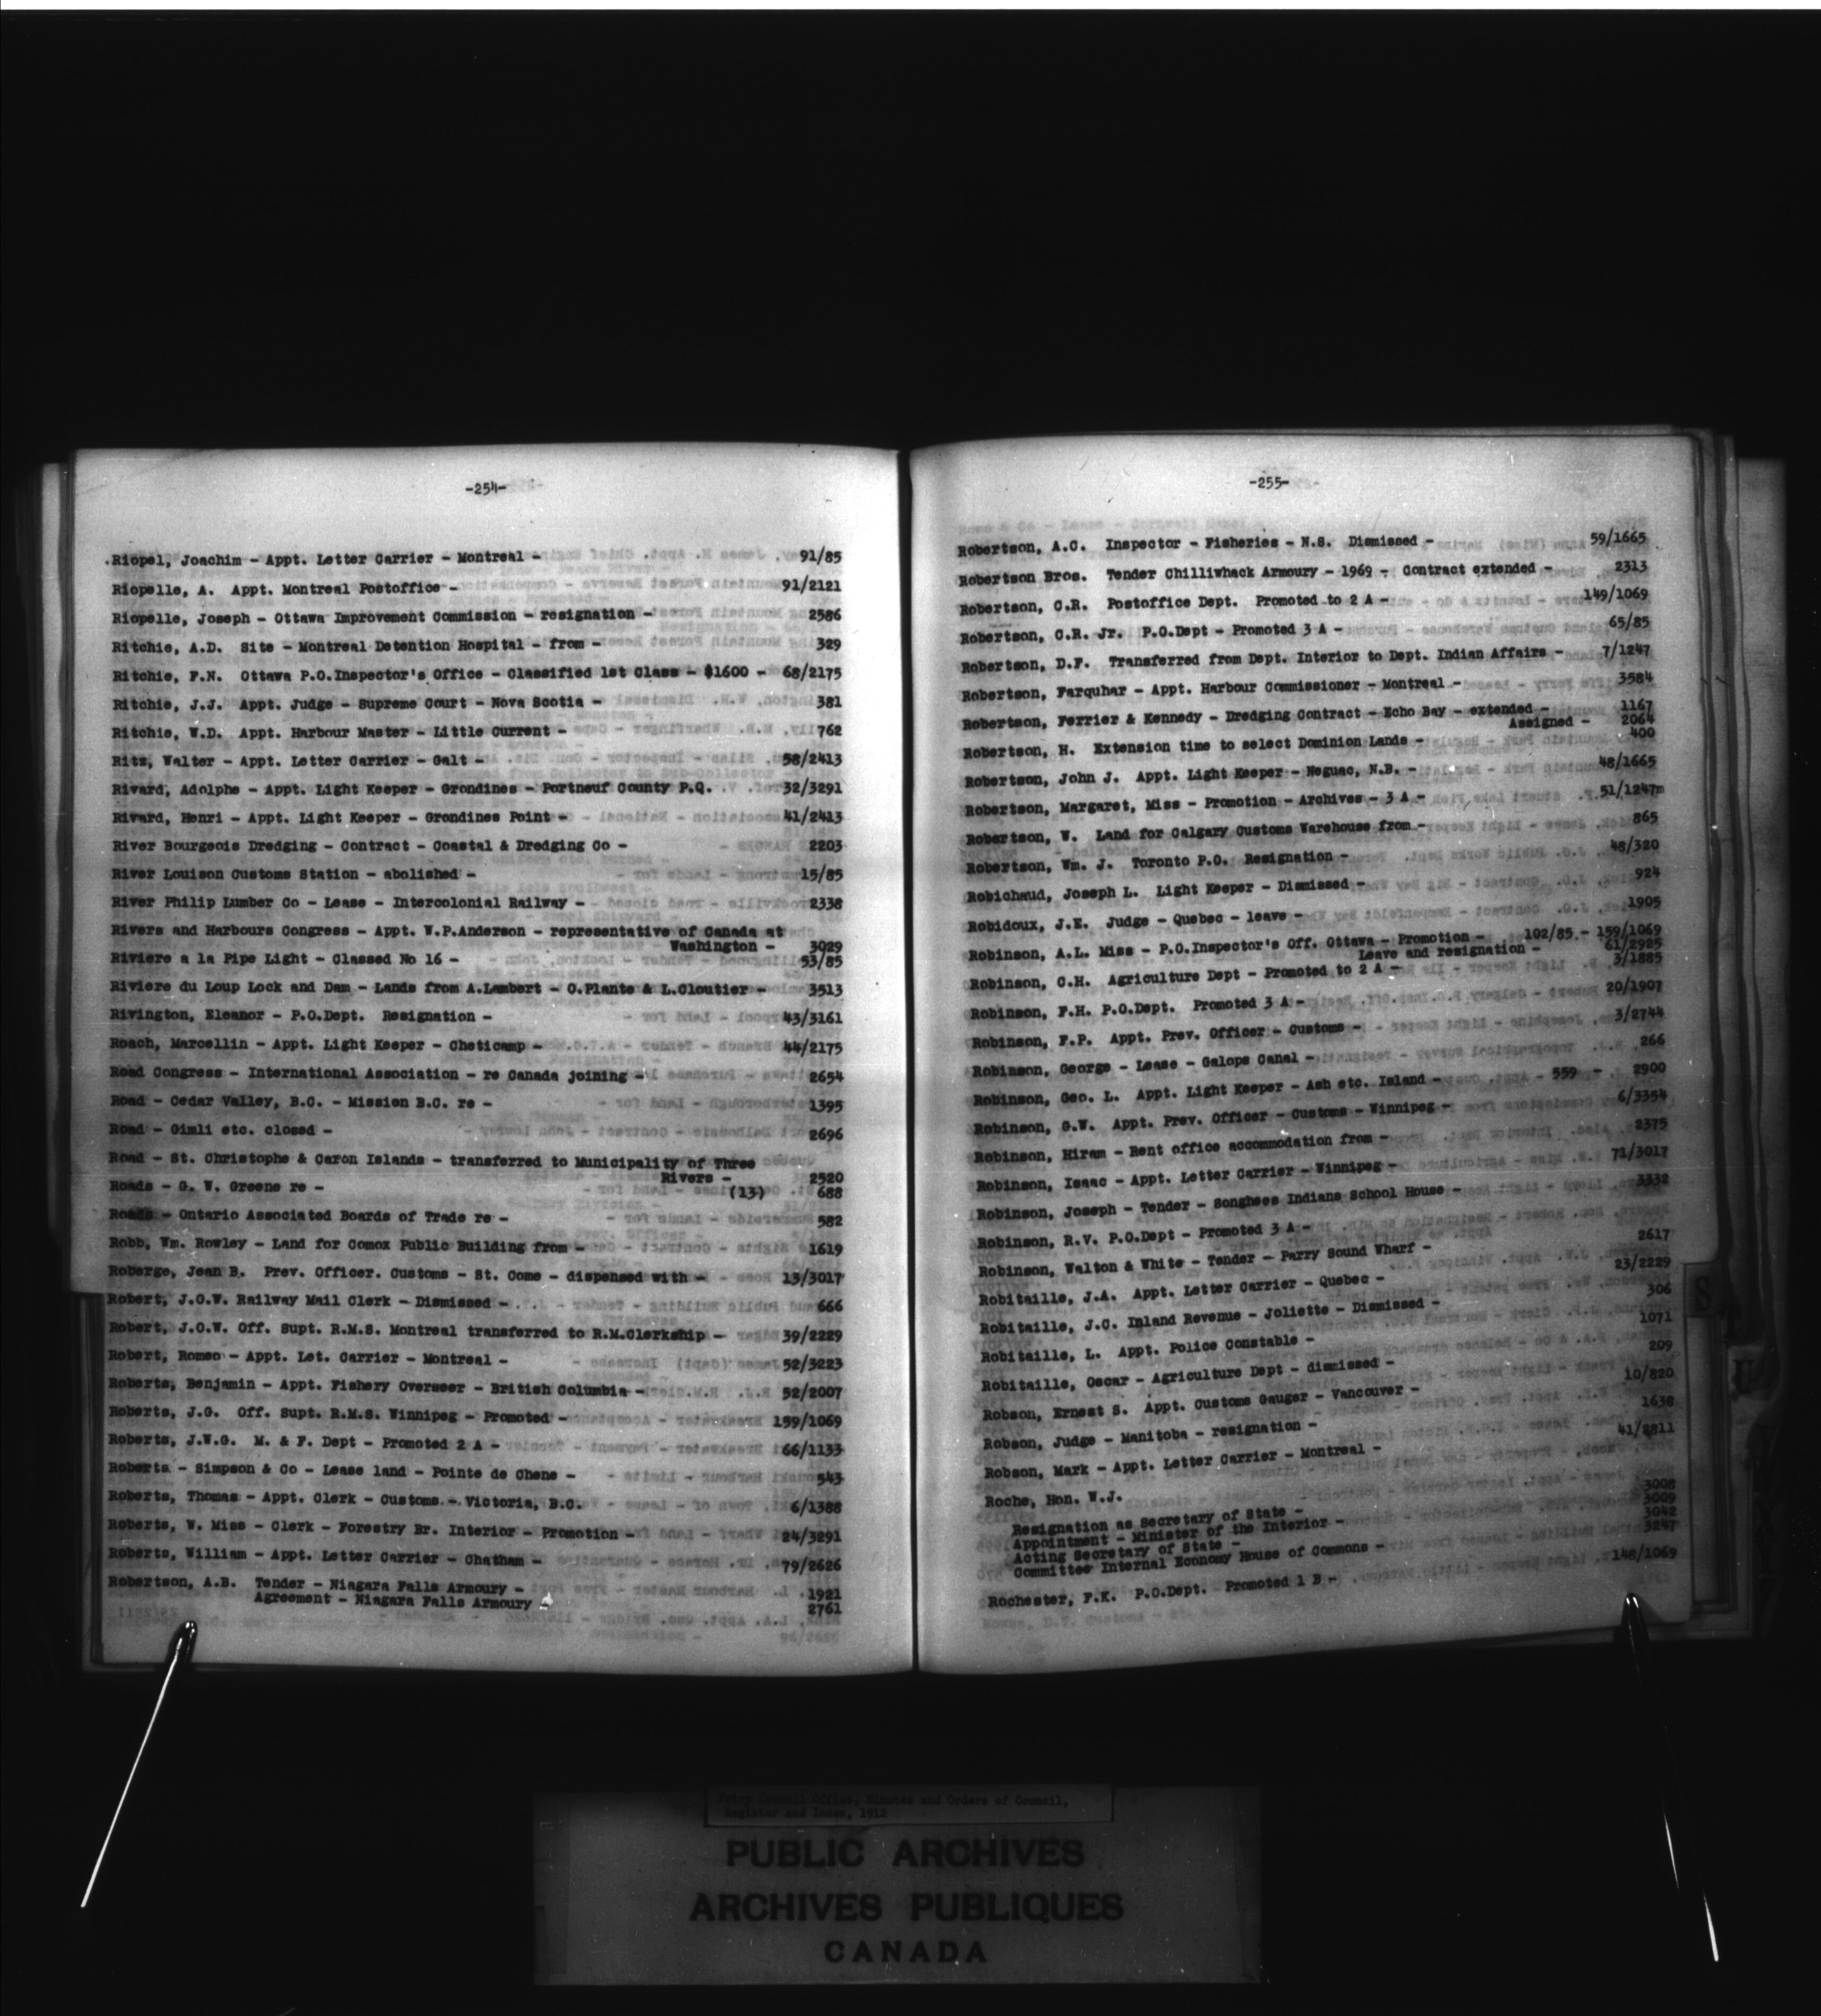 -254-
Riopel, Joachim - Appt. Letter Carrier - Montreal - 91/85
Riopelle, A. Appt. Montreal Postoffice - 91/2121
Riopelle, Joseph - Ottawa Improvement Commission - resignation - 2586
Ritchie, A.D. Site - Montreal Detention Hospital - from - 329
Ritchie, F.N. Ottawa P.O.Inspector's Office - Classified 1st Class - $1600 - 68/2175
Ritchie, J.J. Appt. Judge - Supreme Court - Nova Scotia - 381
Ritchie, W.D. Appt. Harbour Master - Little Current - 762
Ritz, Walter - Appt. Letter Carrier - Galt - 58/2413
Rivard, Adolphe - Appt. Light Keeper - Grondines - Portneuf County P.Q. 32/3291
Rivard, Henri - Appt. Light Keeper - Grondines Point - 41/2413
River Bourgeois Dredging - Contract - Coastal & Dredging Co - 2203
River Louison Customs Station - abolished - 15/85
River Philip Lumber Co - Lease - Intercolonial Railway - 2338
Rivers and Harbours Congress - Appt. W.P.Anderson - representative of Canada at
Washington - 3029
Riviere a la Pipe Light - Classed No 16 - 53/85
Riviere du Loup Lock and Dam - Lands from A.Lambert - O.Plante & L.Cloutier - 3513
Rivington, Eleanor - P.O.Dept. Resignation - 43/3161
Roach, Marcellin - Appt. Light Keeper - Cheticamp - 44/2175
Road Congress - International Association - re Canada joining - 2654
Road - Cedar Valley, B.C. - Mission B.C. re - 1395
Road - Gimli etc. closed - 2696
Road - St. Christophe & Caron Islands - transferred to Municipality of Three
Rivers - 2520
Roads - G. W. Greene re - (13) 688
Roads - Ontario Associated Boards of Trade re - 582
Robb, Wm. Rowley - Land for Comox Public Building from - 1619
Roberge, Jean B. Prev. Officer. Customs - St. Come - dispensed with - 13/3017
Robert, J.O.W. Railway Mail Clerk - Dismissed - 666
Robert, J.O.W. Off. Supt. R.M.S. Montreal transferred to R.M.Clerkship - 39/2229
Robert, Romeo - Appt. Let. Carrier - Montreal - 52/3223
Roberts, Benjamin - Appt. Fishery Overseer - British Columbia - 52/2007
Roberts, J.G. Off. Supt. R.M.S. Winnipeg - Promoted - 159/1069
Roberts, J.W.G. M. & F. Dept - Promoted 2 A - 66/1133
Roberts - Simpson & Co - Lease land - Pointe de Chene - 543
Roberts, Thomas - Appt. Clerk - Customs - Victoria, B.C. 6/1388
Roberts, W. Miss - Clerk - Forestry Br. Interior - Promotion - 24/3291
Roberts, William - Appt. Letter Carrier - Chatham - 79/2626
Robertson, A.B. Tender - Niagara Falls Armoury - 1921
Agreement - Niagara Falls Armoury - 2761
-255-
Robertson, A.C. Inspector - Fisheries - N.S. Dismissed - 59/1665
Robertson Bros. Tender Chilliwhack Armoury - 1969 - Contract extended - 2313
Robertson, C.R. Postoffice Dept. Promoted to 2 A - 149/1069
Robertson, C.R. Jr. P.O.Dept - Promoted 3 A - 65/85
Robertson, D.F. Transferred from Dept. Interior to Dept. Indian Affairs - 7/1247
Robertson, Farquhar - Appt. Harbour Commissioner - Montreal - 3584
Robertson, Ferrier & Kennedy - Dredging Contract - Echo Bay - extended - 1167
Assigned - 2064
Robertson, H. Extension time to select Dominion Lands - 400
Robertson, John J. Appt. Light Keeper - Neguac, N.B. - 48/1665
Robertson, Margaret, Miss - Promotion - Archives - 3 A - 51/1247m
Robertson, W. Land for Calgary Customs Warehouse from - 865
Robertson, Wm. J. Toronto P.O. Resignation - 48/320
Robichaud, Joseph L. Light Keeper - Dismissed - 924
Robidoux, J.E. Judge - Quebec - leave - 1905
Robinson, A.L. Miss - P.O.Inspector's Off. Ottawa - Promotion - 102/85 - 159/1069
Leave and resignation - 61/2925
Robinson, C.H. Agriculture Dept - Promoted to 2 A - 3/1885
Robinson, F.H. P.O.Dept. Promoted 3 A - 20/1907
Robinson, F.P. Appt. Prev. Officer - Customs - 3/2744
Robinson, George - Lease - Galops Canal - 266
Robinson, Geo. L. Appt. Light Keeper - Ash etc. Island - 559 - 2900
Robinson, G.W. Appt. Prev. Officer - Customs - Winnipeg - 6/3354
Robinson, Hiram - Rent office accommodation from - 2375
Robinson, Isaac - Appt. Letter Carrier - Winnipeg - 71/3017
Robinson, Joseph - Tender - Songhees Indians School House - 3332
Robinson, R.V. P.O.Dept - Promoted 3 A -
Robinson, Walton & White - Tender - Parry Sound Wharf - 2617
Robitaille, J.A. Appt. Letter Carrier - Quebec - 23/2229
Robitaille, J.C. Inland Revenue - Joliette - Dismissed - 306
Robitaille, L. Appt. Police Constable - 1071
Robitaille, Oscar - Agriculture Dept - dismissed - 209
Robson, Ernest S. Appt. Customs Gauger - Vancouver - 10/820
Robson, Judge - Manitoba - resignation - 1638
Robson, Mark - Appt. Letter Carrier - Montreal - 41/2811
Roche, Hon. W.J.
Resignation as Secretary of State - 3008
Appointment - Minister of the Interior - 3009
Acting Secretary of State - 3042
Committee Internal Economy House of Commons - 3247
Rochester, F.K. P.O.Dept. Promoted 1 B - 148/1069
Privy Council Office, Minutes and Orders of Council,
Register and Index, 1912
PUBLIC ARCHIVES
ARCHIVES PUBLIQUES
CANADA